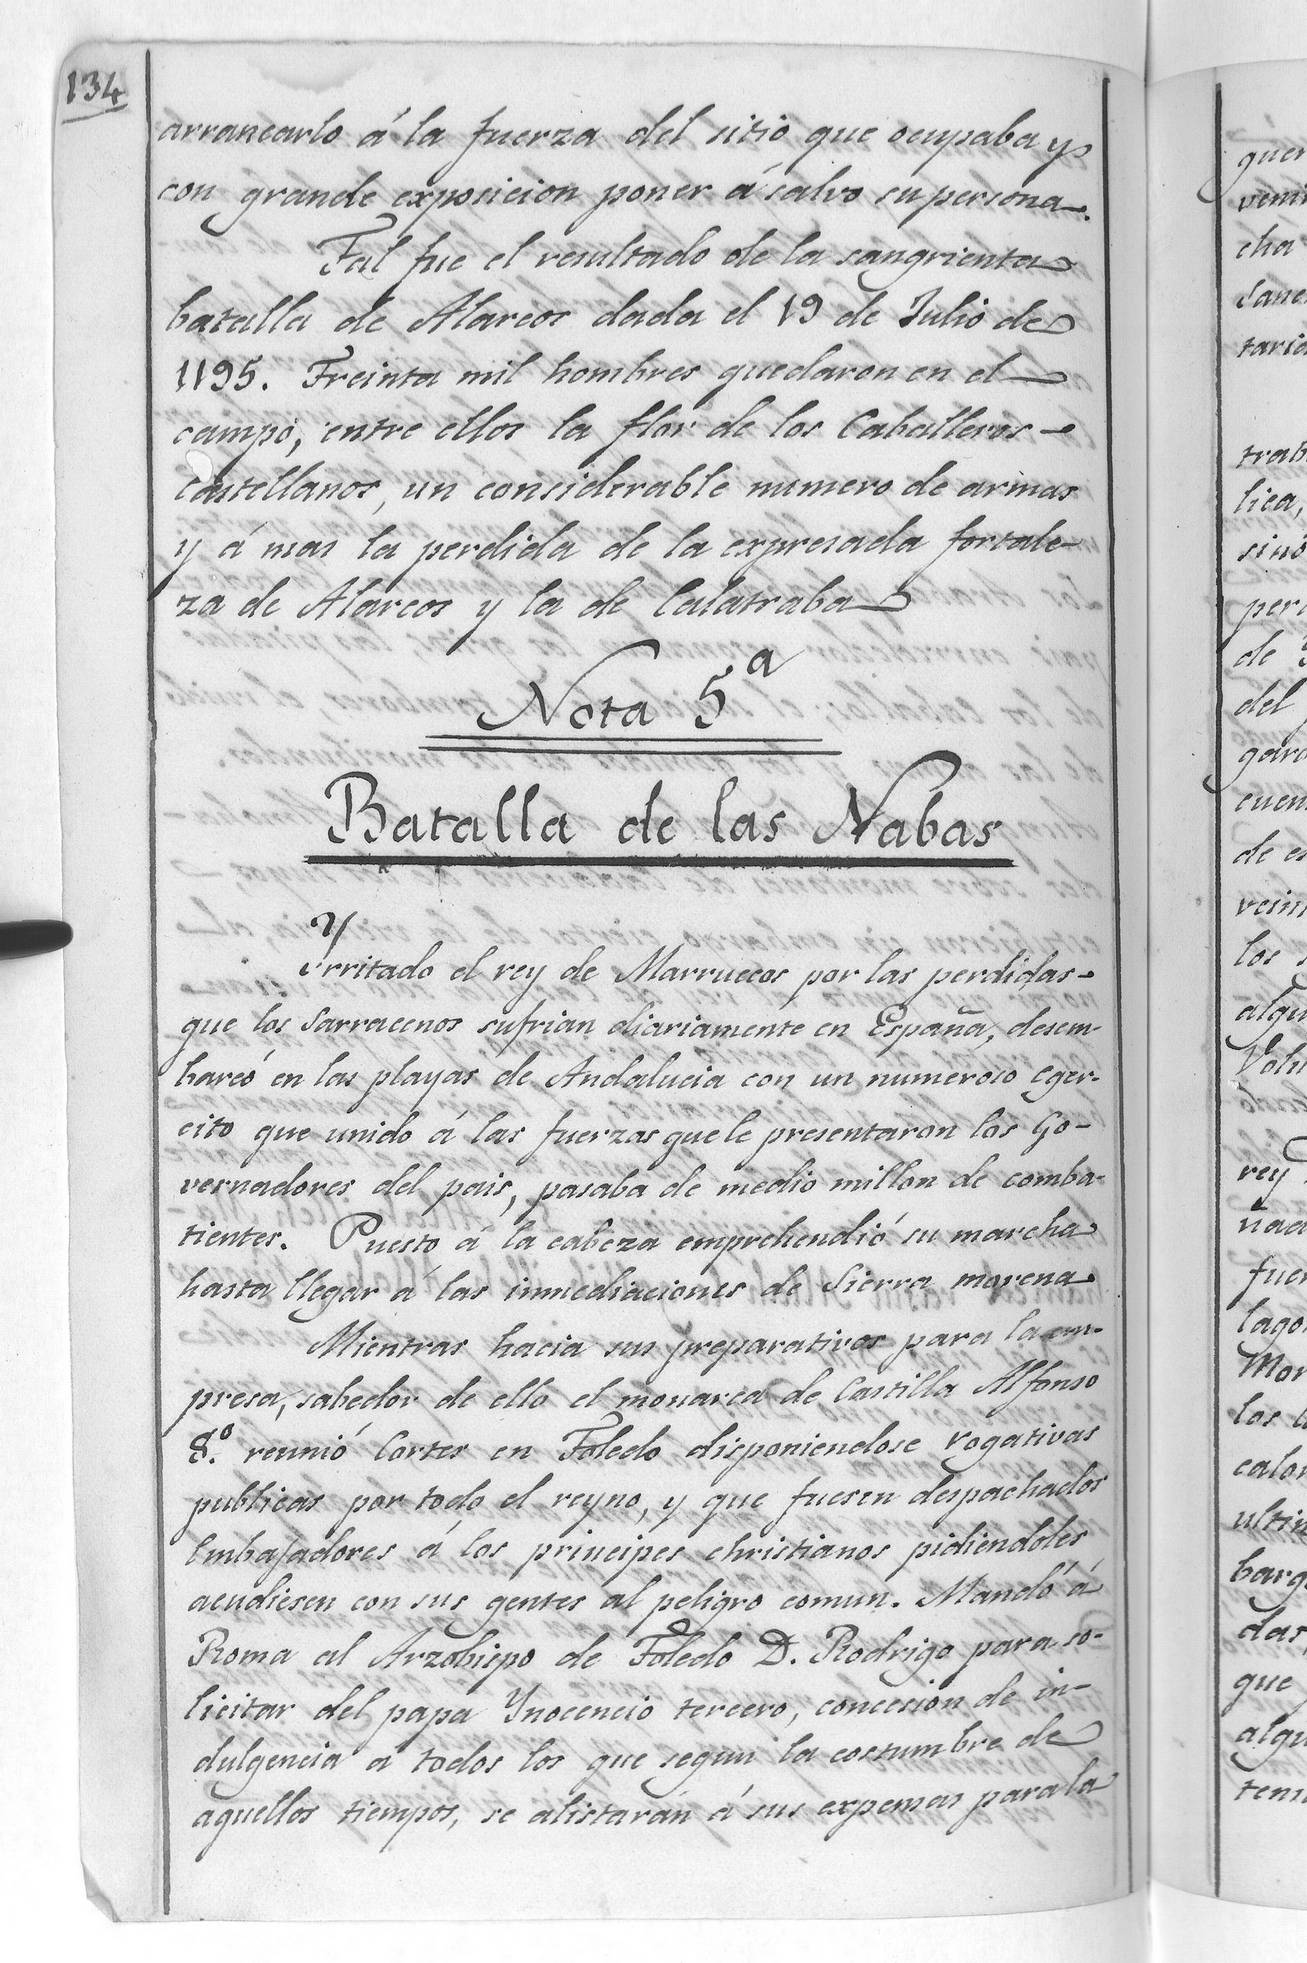 134
arrancarlo á la fuerza del sitio que ocupaba y
con grande exposicion poner á salvo su persona.
Tal fue el resultado de la sangrienta
batalla de Alarcos dada el 19 de Julio de
1195. Treinta mil hombres quedaron en el
campo, entre ellos la flor de los Caballeros
castellanos, un considerable numero de armas
y á mas la perdida de la expresada fortale-
za de Alarcos y la de Calatraba
Nota 5ª
Batalla de las Nabas
Yrritado el rey de Marruecos por las perdidas
que los Sarracenos sufrian diariamente en España, desem-
barcó en las playas de Andalucia con un numeroso eger-
cito que unido á las fuerzas que le presentaron los Go-
vernadores del pais, pasaba de medio millon de comba-
tientes. Puesto á la cabeza emprehendió su marcha
hasta llegar á las inmediaciones de Sierra morena
Mientras hacia sus preparativos para la em-
presa, sabedor de ello el monarca de Castilla Alfonso
8.º reunió Cortes en Toledo disponiendose rogativas
publicas por todo el reyno, y que fuesen despachados
Embajadores á los principes christianos pidiendoles
acudiesen con sus gentes al peligro comun. Mandó á
Roma al Arzobispo de Toledo D. Rodrigo para so-
licitar del papa Ynocencio tercero, concesion de in-
dulgencia a todos los que segun la costumbre de
aquellos tiempos, se alistarán á sus expensas para la